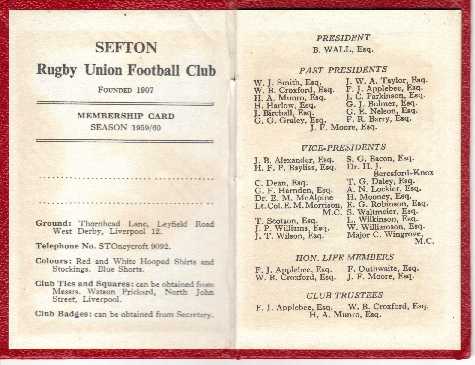 SEFTON
Rugby Union Football Club
FOUNDED 1907
MEMBERSHIP CARD
SEASON 1959/60
Ground: Thornhead Lane, Leyfield Road
West Derby, Liverpool 12.
Telephone No. STOneycroft 9092.
Colours: Red and White Hooped Shirts and
Stockings. Blue Shorts.
Club Ties and Squares: can be obtained from
Messrs. Watson Prickard, North John
Street, Liverpool.
Club Badges: can be obtained from Secretary.
PRESIDENT
B. WALL, Esq.
PAST PRESIDENTS
W. J. Smith, Esq. J. W. A. Taylor, Esq.
W. B. Croxford, Esq. F. J. Applebee, Esq.
H. A. Munro, Esq. J. C. Parkinson, Esq.
H. Harlow, Esq. G. J. Bolmer, Esq.
J. Birchall, Esq. G. E. Nelson, Esq.
G. G. Gruley, Esq. F. R. Barry, Esq.
J. F. Moore, Esq.
VICE-PRESIDENTS
J. B. Alexander, Esq. S. G. Bacon, Esq.
H. F. F. Bayliss, Esq. Dr. H. J.
Beresford-Knox
C. Dean, Esq. T. G. Daley, Esq.
G. F. Harnden, Esq. A. N. Lockier, Esq.
Dr. E. M. McAlpine H. Mooney, Esq.
Lt.Col. E. M. Morrison, R. G. Robinson, Esq.
M.C. S. Waltmeier, Esq.
T. Stotson, Esq. L. Wilkinson, Esq.
J. P. Williams, Esq. W. Williamson, Esq.
J. T. Wilson, Esq. Major C. Wingrove,
M.C.
HON. LIFE MEMBERS
F. J. Applebee, Esq. F. Outhwaite, Esq.
W. B. Croxford, Esq. J. F. Moore, Esq.
CLUB TRUSTEES
F. J. Applebee, Esq. W. B. Croxford, Esq.
H. A. Munro, Esq.